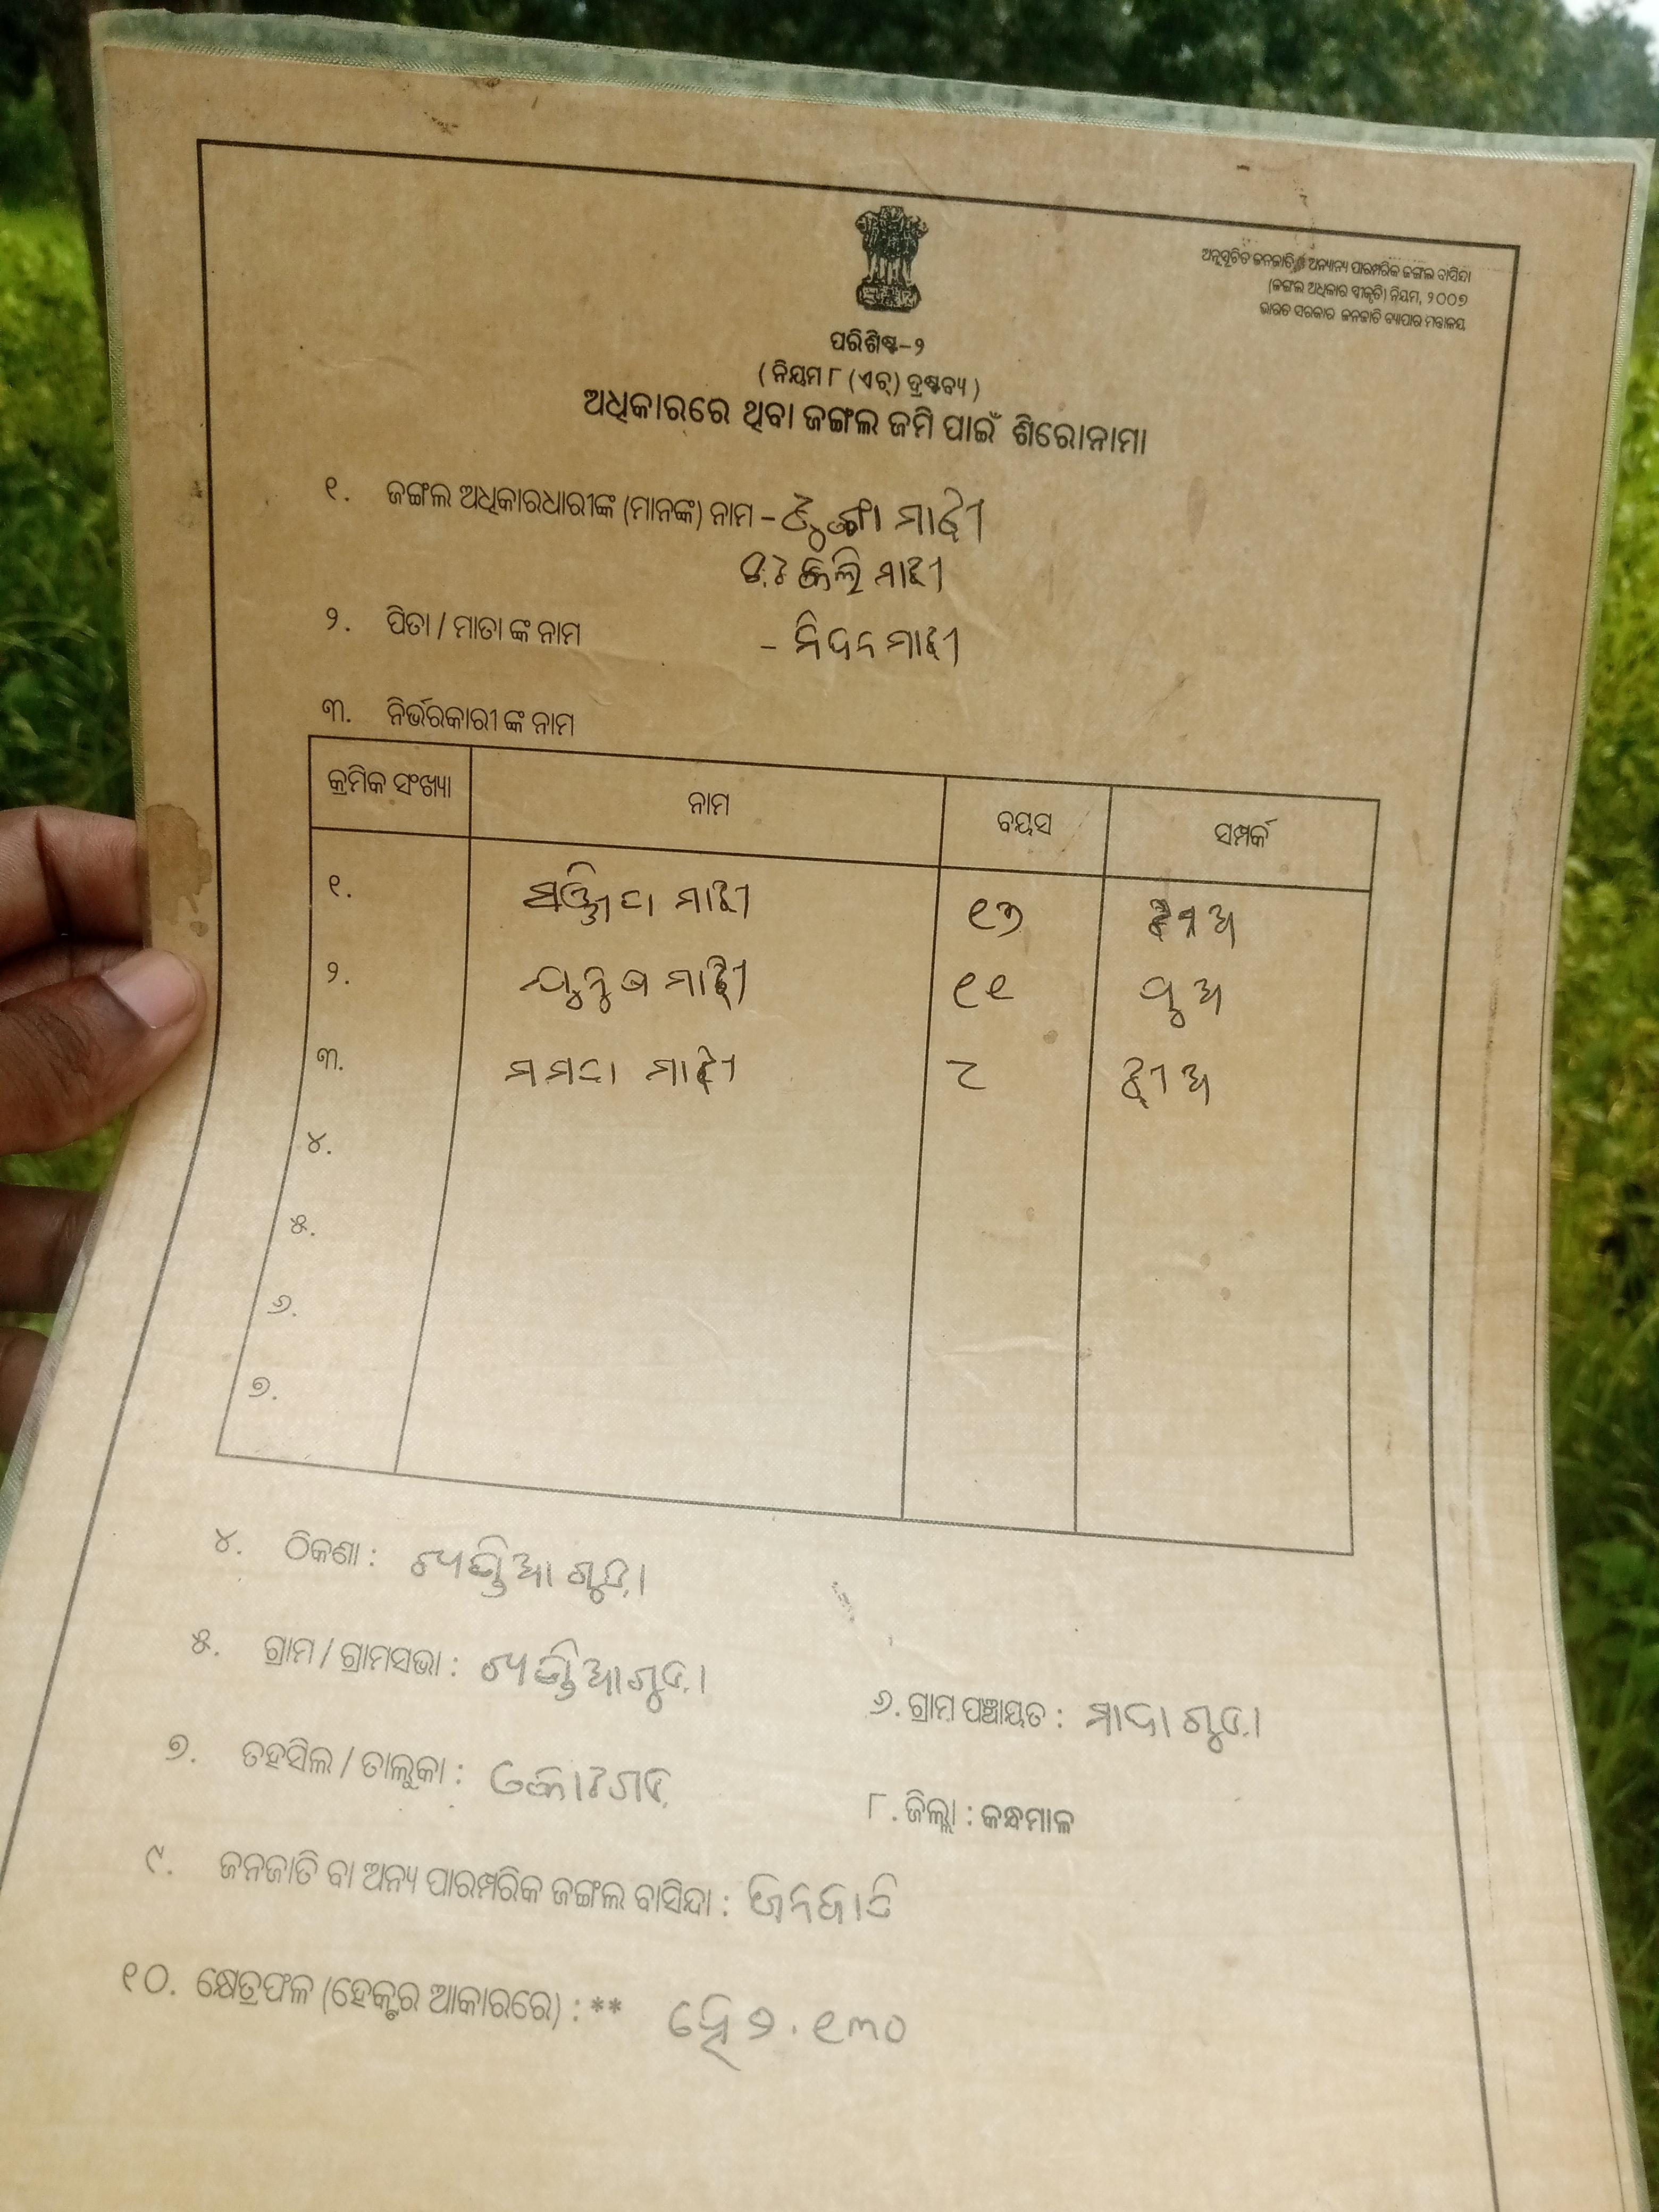 ଅନୁସୂଚିତ ଜନଜାତି ଓ ଅନ୍ୟାନ୍ୟ ପାରମ୍ପରିକ ଜଙ୍ଗଲ ବାସିନ୍ଦା
(ଜଙ୍ଗଲ ଅଧିକାର ସ୍ୱୀକୃତି) ନିୟମ, ୨୦୦୭
ଭାରତ ସରକାର ଜନଜାତି ବ୍ୟାପାର ମନ୍ତ୍ରାଳୟ
ପରିଶିଷ୍ଟ-୨
(ନିୟମ ୮ (ଏଚ୍) ଦ୍ରଷ୍ଟବ୍ୟ)
ଅଧିକାରରେ ଥିବା ଜଙ୍ଗଲ ଜମି ପାଇଁ ଶିରୋନାମା
୧. ଜଙ୍ଗଲ ଅଧିକାରଧାରୀଙ୍କ (ମାନଙ୍କ) ନାମ - ମାଝୀ
ମାଝୀ
୨. ପିତା / ମାତା ଙ୍କ ନାମ - ମାଝୀ
୩. ନିର୍ଭରକାରୀ ଙ୍କ ନାମ
କ୍ରମିକ ସଂଖ୍ୟା ନାମ ବୟସ ସମ୍ପର୍କ
୧. ମାଝୀ ୧୬ ଝିଅ
୨. ମାଝୀ ୧୧ ପୁଅ
୩. ମମତା ମାଝୀ ୮ ଝୀଅ
୪.
୫.
୬.
୭.
୪. ଠିକଣା :
୫. ଗ୍ରାମ / ଗ୍ରାମସଭା :
୬. ଗ୍ରାମ ପଞ୍ଚାୟତ :
୭. ତହସିଲ / ତାଲୁକା :
୮. ଜିଲ୍ଲା : କନ୍ଧମାଳ
୯. ଜନଜାତି ବା ଅନ୍ୟ ପାରମ୍ପରିକ ଜଙ୍ଗଲ ବାସିନ୍ଦା : ଜନଜାତି
୧୦. କ୍ଷେତ୍ରଫଳ (ହେକ୍ଟର ଆକାରରେ) : ** ହେ ୨.୧୩୦